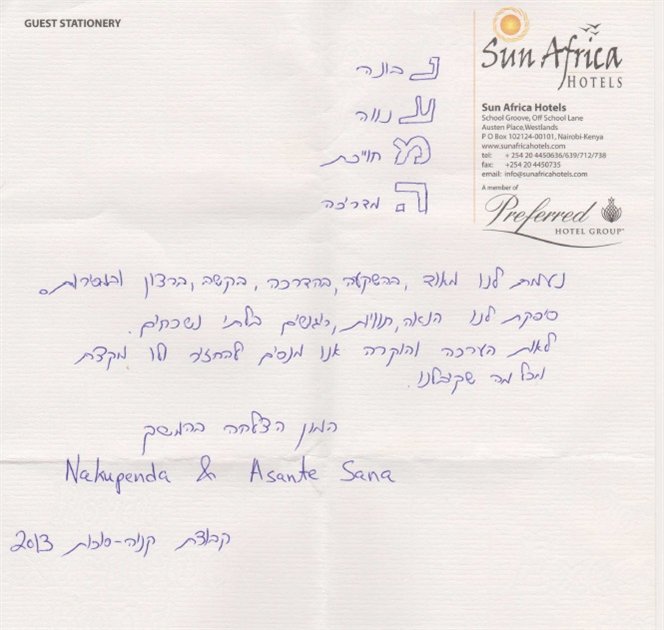 GUEST STATIONERY
Sun Africa
HOTELS
Sun Africa Hotels
School Groove, Off School Lane
Austen Place,Westlands
P O Box 102124-00101, Nairobi-Kenya
www.sunafricahotels.com
tel: + 254 20 4450636/639/712/738
fax: +254 20 4450735
email: info@sunafricahotels.com
A member of
Preferred
HOTEL GROUP
נבונה
ענווה
מחוייכת
המדריכה
נעמת לנו מאוד, בהשקעה, בהדרכה, בקשה, ברצון והמסירות.
סיפקת לנו הנאה, חוויות, ריגושים בלתי נשכחים.
לאות הערכה והוקרה אנו מנסים להחזיר ולו מקצת
מכל מה שקיבלנו.
המון הצלחה בהמשך
Nakupenda & Asante Sana
קבוצת קניה-סוכות 2013